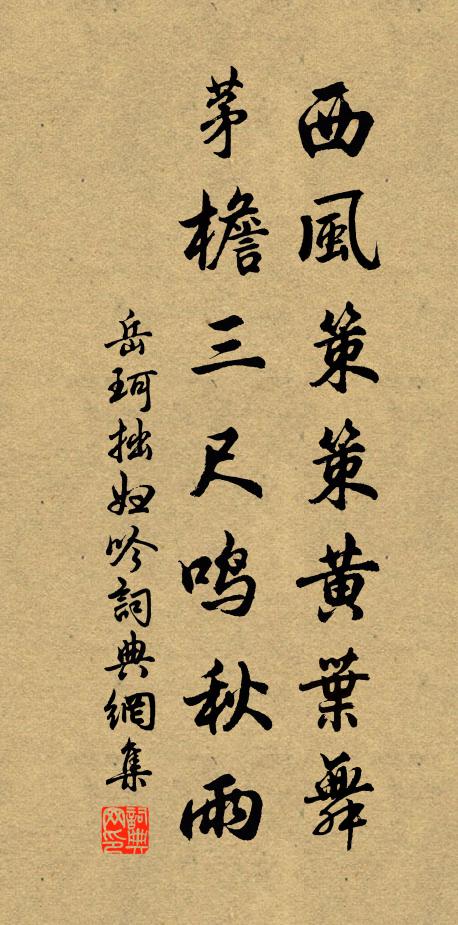 西風策策黃葉舞
茅檐三尺鳴秋雨
岳珂拙婦吟詞典網集
詞典
网印